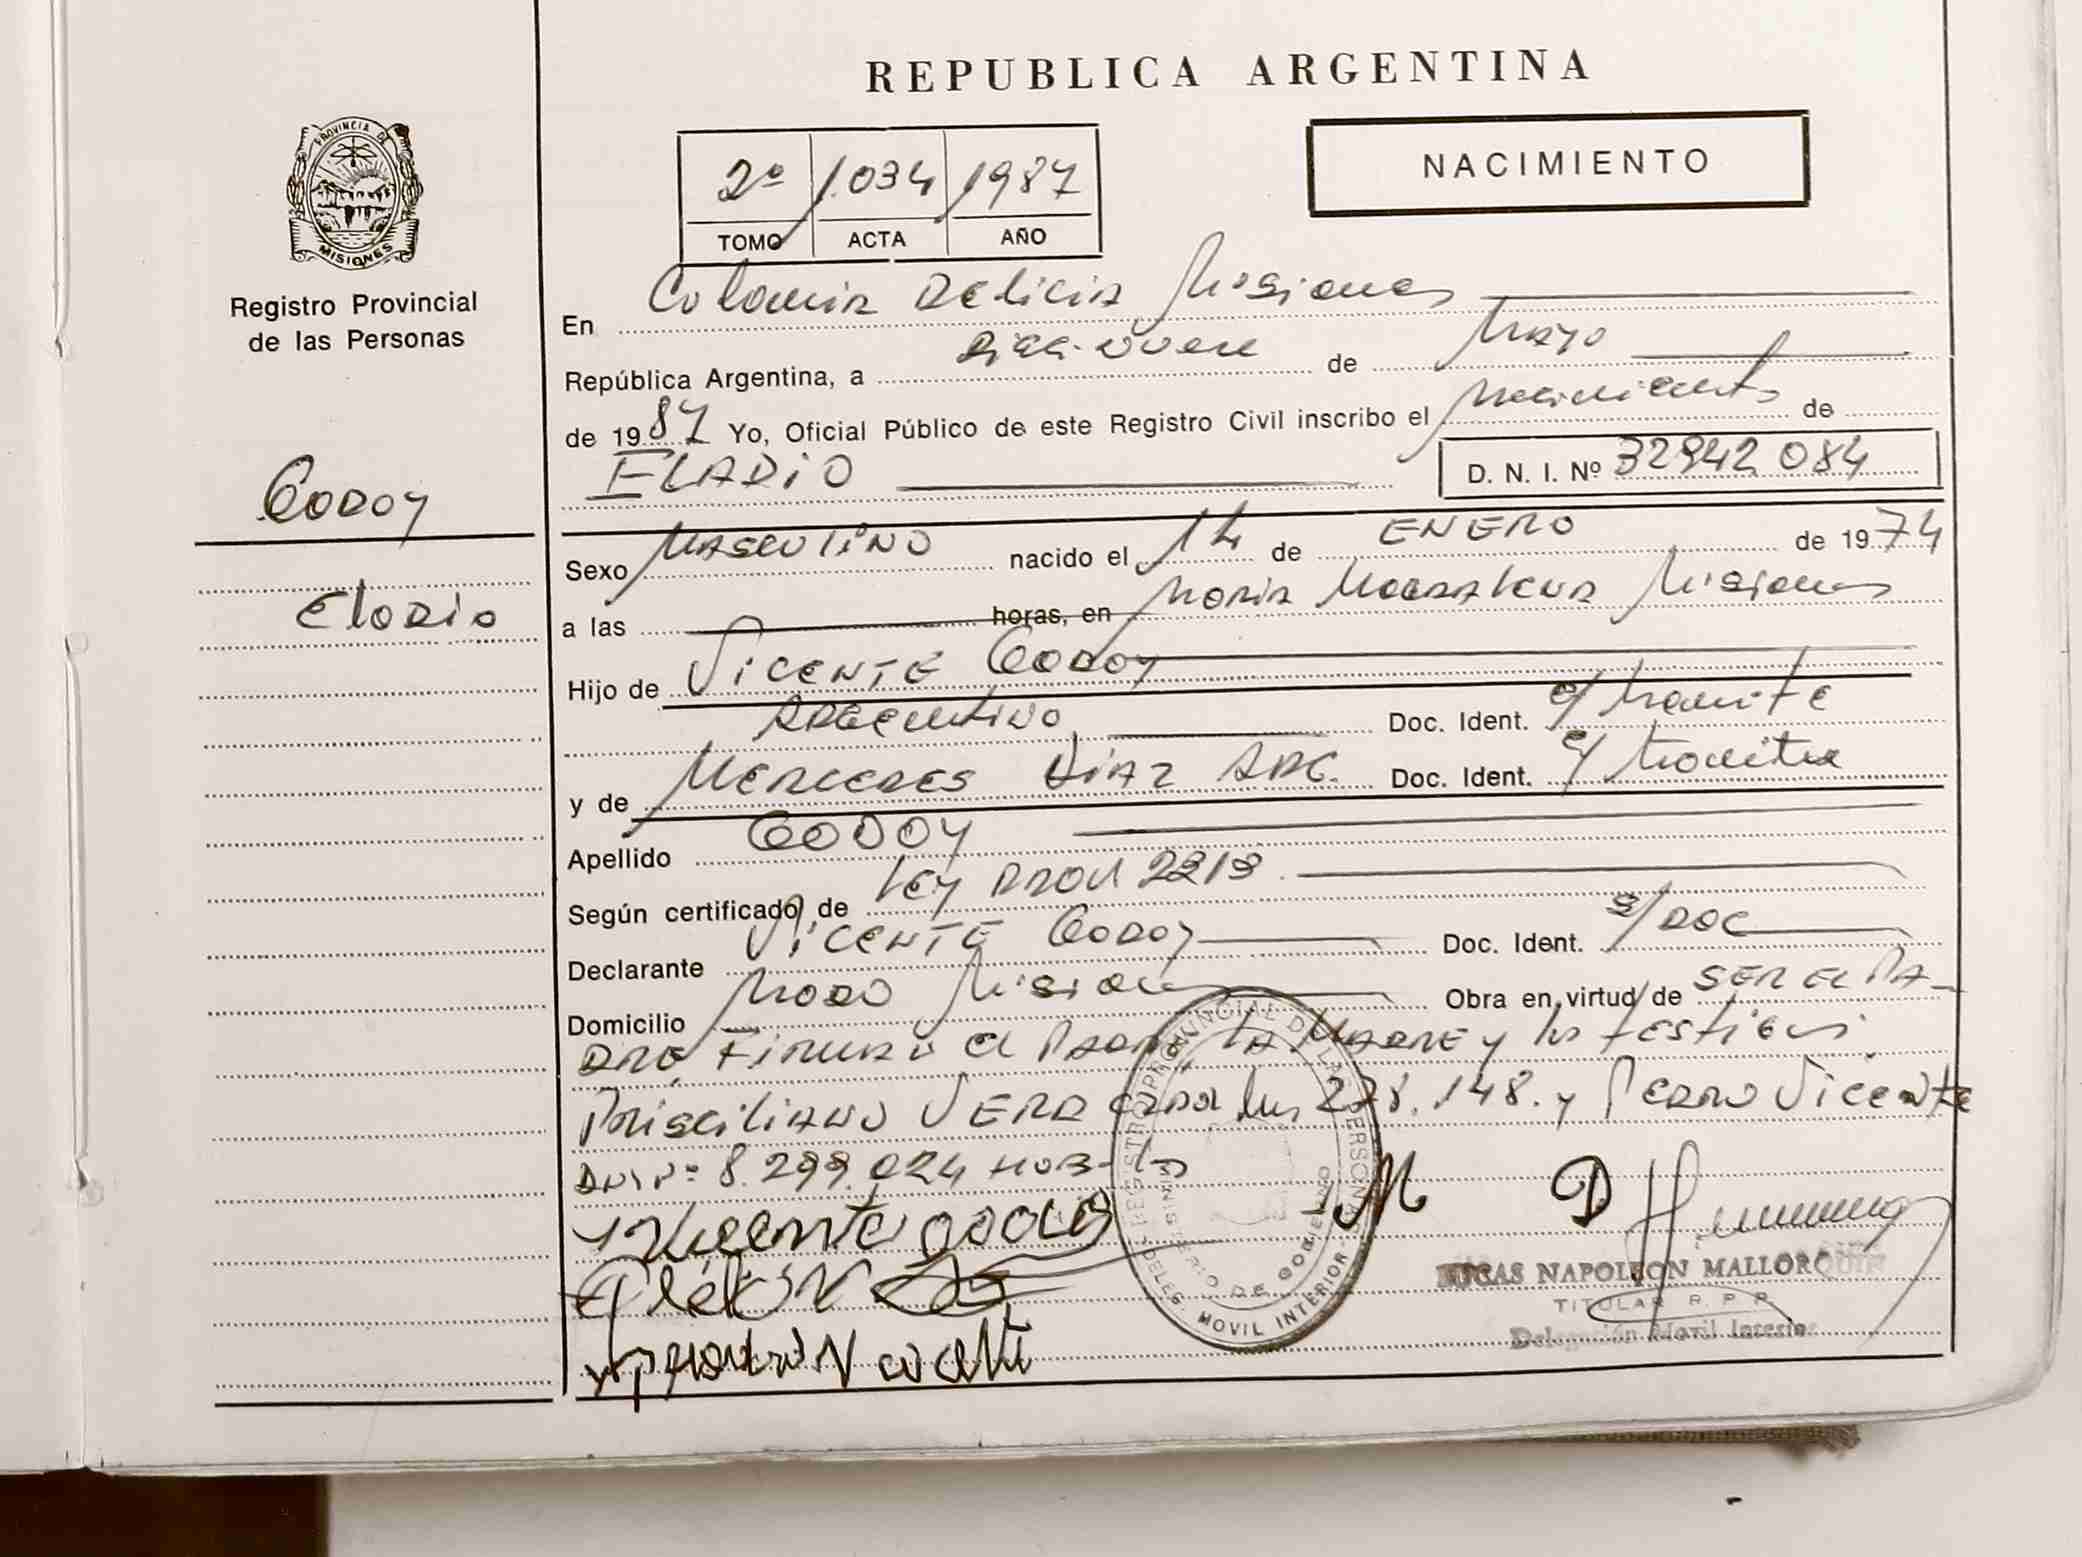 REPUBLICA ARGENTINA
PROVINCIA DE
MISIONES
Registro Provincial
de las Personas
2º 1.034 1987
TOMO ACTA AÑO
NACIMIENTO
En Colonia Delicia Misiones
República Argentina, a diecinueve de Mayo
de 1987 Yo, Oficial Público de este Registro Civil inscribo el nacimiento de
ELADIO
D. N. I. Nº 32942 084
GODOY
Eladio
Sexo MASCULINO nacido el 14 de ENERO de 1974
a las horas, en Maria Magdalena Misiones
Hijo de VICENTE GODOY
Argentino Doc. Ident. e/ tramite
y de MERCEDES DIAZ ARG. Doc. Ident. e/ tramite
Apellido GODOY
Según certificado de LEY PROV 2213
Declarante VICENTE GODOY Doc. Ident. S/DOC
Domicilio Misiones Obra en virtud de SER EL PA-
DRE, FIRMAN el PADRE LA MADRE y los testigos
PRISCILIANO VERA 278.148. y PEDRO Vicente
DNI Nº 8.299.024
Vicente godoy
M D
REGISTRO PROVINCIAL DE LAS PERSONAS
MINISTERIO DE GOBIERNO
DELEG. MOVIL INTERIOR
NAPOLEON MALLORQUIN
TITULAR R. P. P.
Delegación Movil Interior